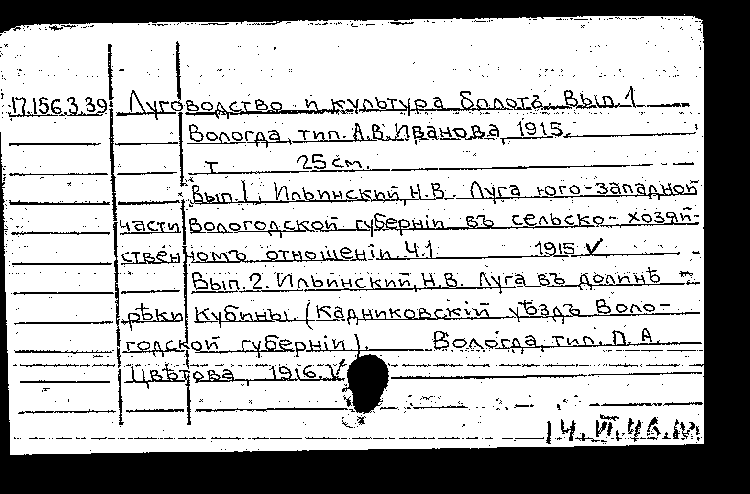 17.156.3.39 Луговодство и культура болотъ. Вып. 1
Вологда, тип. А.В. Иванова, 1915.
т 25 см.
Вып. 1. Ильинский, Н.В. Луга юго-западной
части Вологодской губерніи въ сельско-хозяй-
ственномъ отношеніи. Ч.1 1915 ✓
Вып. 2. Ильинский, Н.В. Луга въ долинѣ
рѣки Кубины. (Кадниковскій уѣздъ Воло-
годской губерніи). Вологда, тип. П. А.
Цвѣтова, 1916. ✓
14.VI.46.